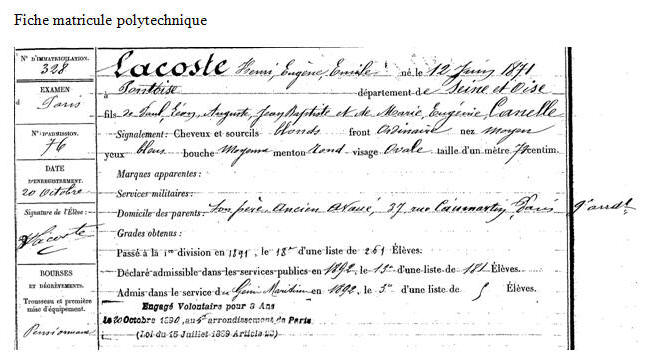 Fiche matricule polytechnique
N° D'IMMATRICULATION.
328
EXAMEN
d Paris
N° D'ADMISSION.
76
DATE
D'ENREGISTREMENT.
20 Octobre
Signature de l'Élève :
Lacoste
BOURSES
ET DÉGRÈVEMENTS.
Trousseau et première
mise d'équipement.
Pensionnaire
Lacoste Henri, Eugène, Emile né le 12 Juin 1871
à Pontoise département de Seine et Oise
fils de Paul, Léon, Auguste, Jean Baptiste et de Marie, Eugénie, Canelle
Signalement : Cheveux et sourcils blonds front Ordinaire nez moyen
yeux bleus bouche Moyenne menton rond visage Ovale taille d'un mètre 74 centim.
Marques apparentes :
Services militaires :
Domicile des parents : Son père, Ancien Avoué, 37 rue Caumartin, Paris 9e arrdt
Grades obtenus :
Passé à la 1re division en 1891, le 18e d'une liste de 261 Élèves.
Déclaré admissible dans les services publics en 1892, le 13e d'une liste de 181 Élèves.
Admis dans le service du Génie Maritime en 1892, le 3e d'une liste de 5 Élèves.
Engagé Volontaire pour 3 Ans
le 20 Octobre 1890, au arrondissement de Paris
(Loi du 15 Juillet 1889 Article 23)